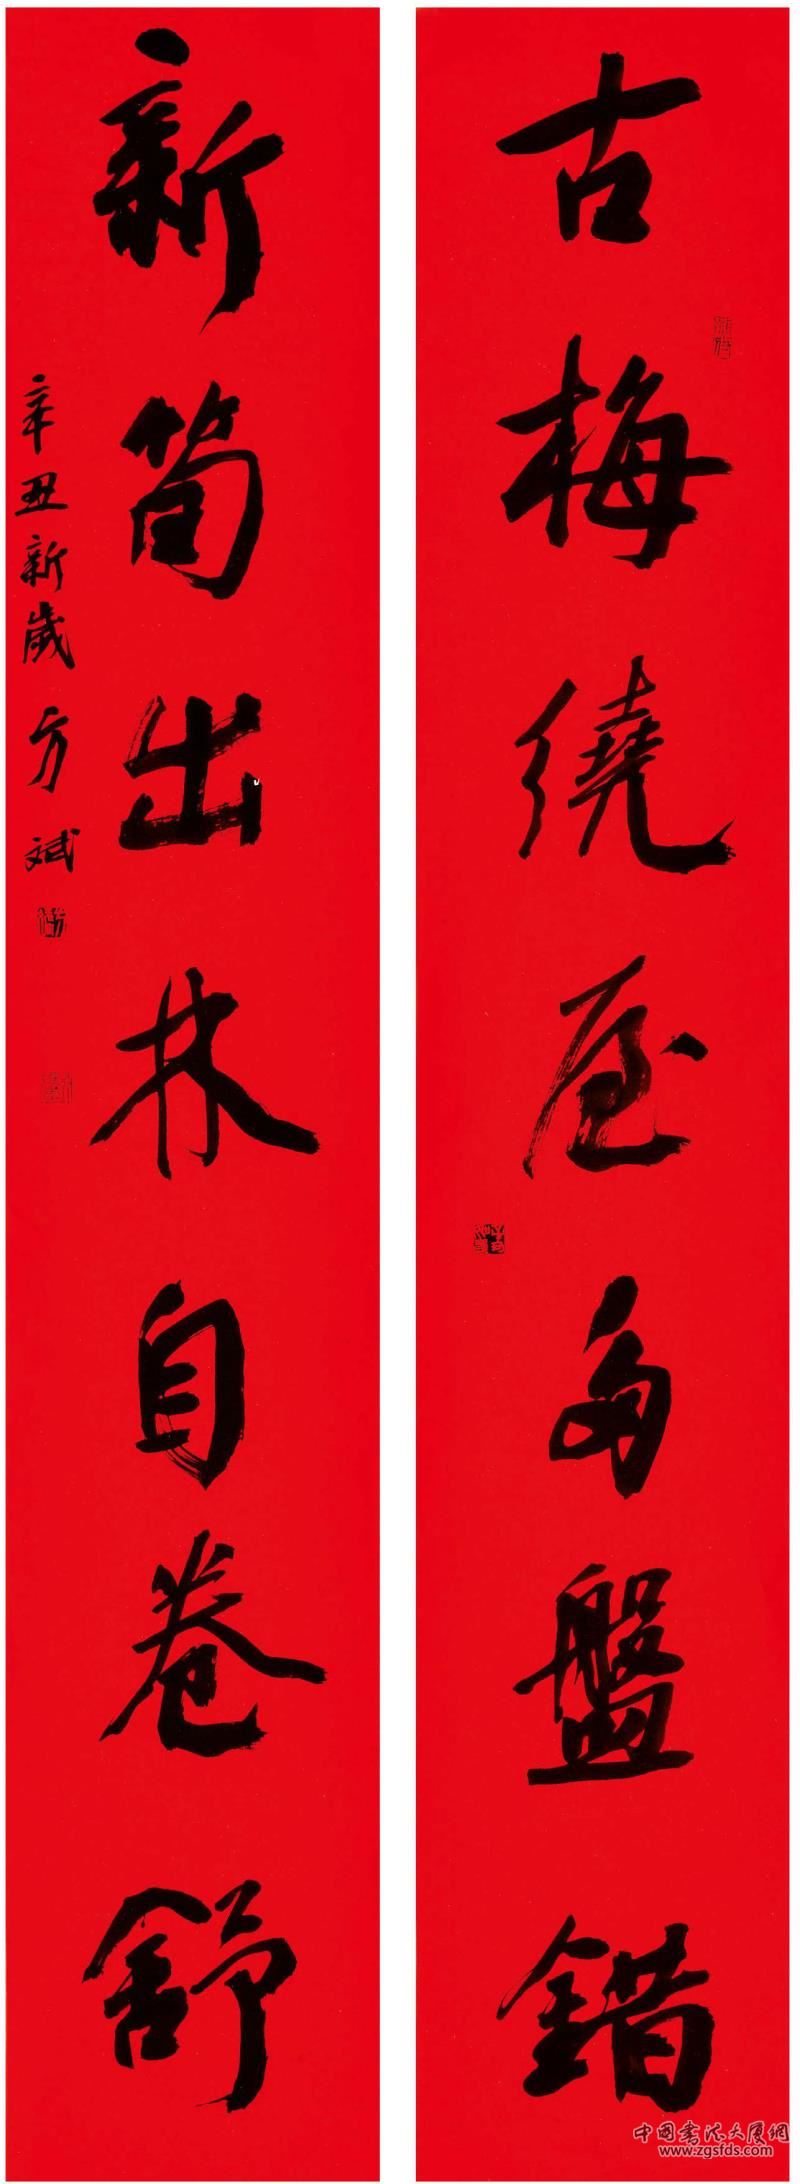 古梅繞屋多盤錯
新筍出林自卷舒
辛丑新歲方斌
中国书法大厦網
www.zgsfds.com